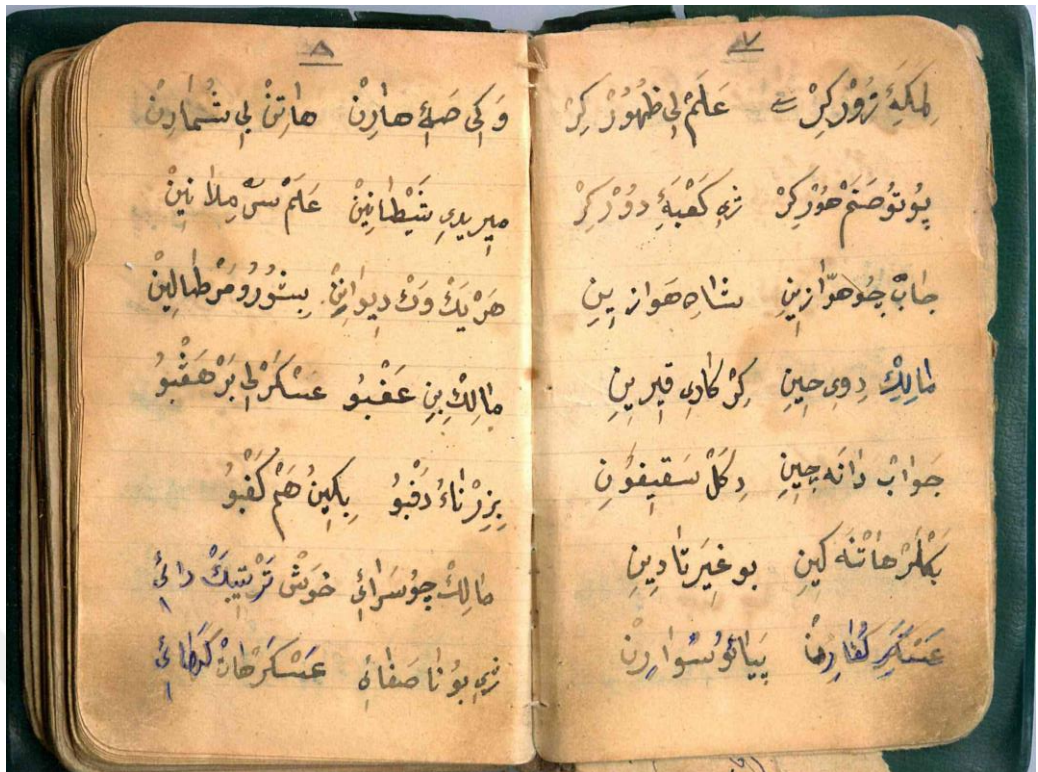 ٧
لِمَكِّهَٔ زُوْرْ كِرْ عَلَمْ لِی ظُهُوُرْ كِرْ
پُوُتُو صَنَمْ حُوُرْ كِرْ ژِی كَعْبَهَٔ دوُرْ كِرْ
جابْ چُو هوّازِینِ شاهِ هَوازِیینِ
مالِكْ دِوِی حِینِ كِرْ كادِی قِیرِینِ
جَوابْ دانَه چِینِ دِكَلْ سَقیفوُنِ
بَكْلَرْ هاتْنَه كِینِ بو غَیرَتا دِینِ
عَسْكَرِ كُفارِنْ پَیائُو سُوارِنْ
٨
وَكِی صَیٔ هارِنْ هاتِنْ لِی شُمارِنْ
مِیرِیدِی شَیْطانِیْنْ عَلَمْ سیّ مِلانِینْ
هَرْ یَكْ وَكْ دِیوانِنْ بِشوُرُو مَرْطالِینْ
مالِكْ بِنِ عَفْبُو عَسْكَرْ لِی بَرْ هَفْبُو
بِزِرْنائُو دَفْبُو بِكِینُ هَمْ كَفْبُو
مالِكْ چُو سَرائِی خوَشْ تَرْتِیبَكْ دائِی
ژِی بوُنا صَفائِی عَسْكَرْ هاتْ كَرْهائِی